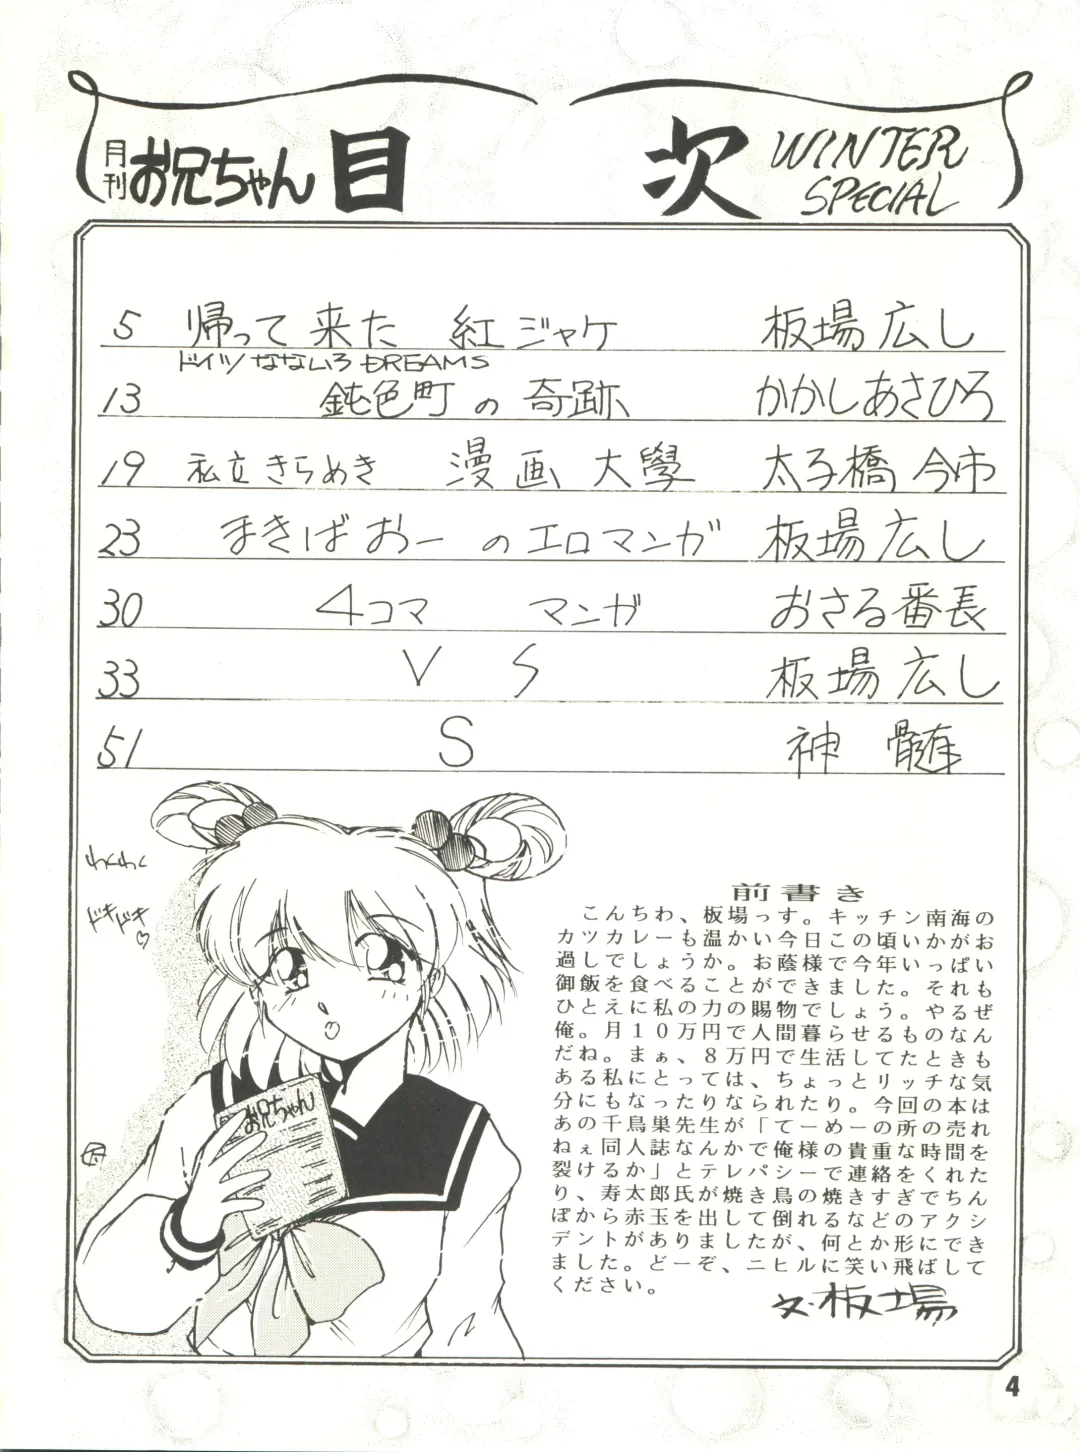 月刊お兄ちゃん 目次 WINTER SPECIAL
5 帰って来た 紅ジャケ 板場広し
ドイツ なないろ DREAMS
13 鈍色町の奇跡 かかしあさひろ
19 私立きらめき 漫画大學 太子橋今市
23 まきばおーのエロマンガ 板場広し
30 4コマ マンガ おさる番長
33 VS 板場広し
51 S 神髄
わくわく
ドキドキ♡
お兄ちゃん
前書き
こんちわ、板場っす。キッチン南海の
カツカレーも温かい今日この頃いかがお
過しでしょうか。お蔭様で今年いっぱい
御飯を食べることができました。それも
ひとえに私の力の賜物でしょう。やるぜ
俺。月10万円で人間暮らせるものなん
だね。まぁ、8万円で生活してたときも
ある私にとっては、ちょっとリッチな気
分にもなったりなられたり。今回の本は
あの千鳥巣先生が「てーめーの所の売れ
ねぇ同人誌なんかで俺様の貴重な時間を
裂けるか」とテレパシーで連絡をくれた
り、寿太郎氏が焼き鳥の焼きすぎでちん
ぽから赤玉を出して倒れるなどのアクシ
デントがありましたが、何とか形にでき
ました。どーぞ、ニヒルに笑い飛ばして
ください。
文・板場
4